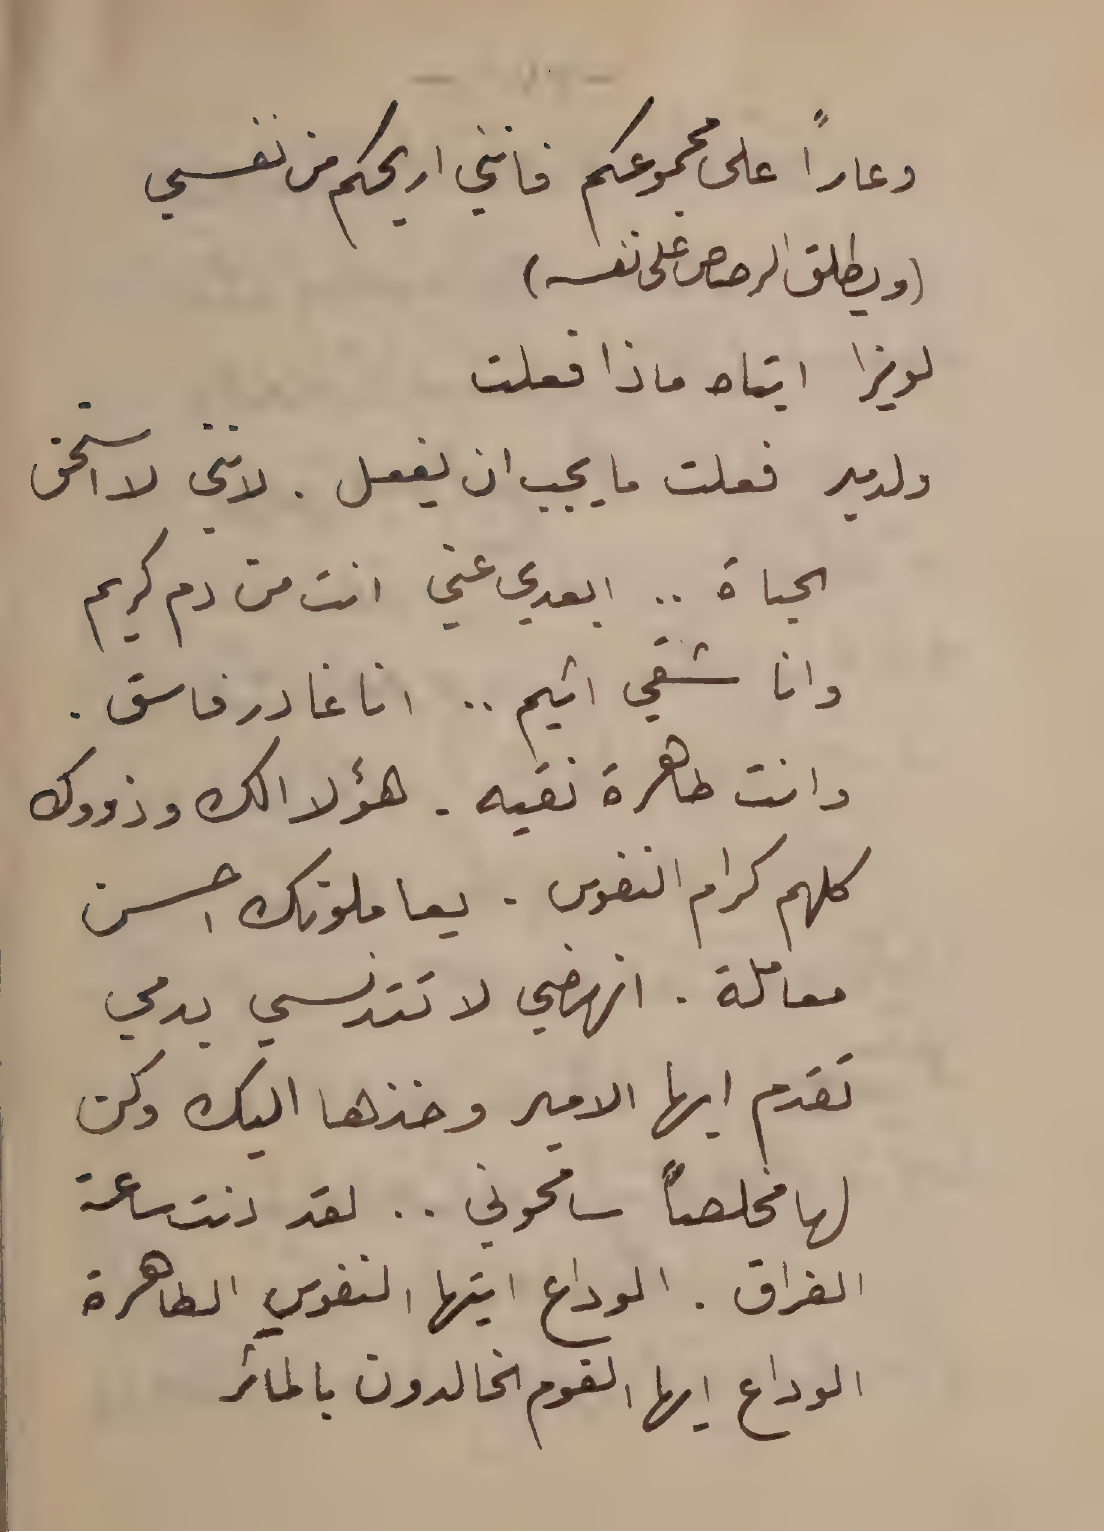 وعاراً على مجموعكم فانني اريحكم من نفسي
(ويطلق الرصاص على نفسه)
لويزا ابتاه ماذا فعلت
ولدمير فعلت ما يجب ان يفعل . لانني لا استحق
الحياة .. ابعدي عني انت من دم كريم
وانا شقي اثيم .. انا غادر فاسق .
وانت طاهرة نقيه . هؤلا الك وذووك
كلهم كرام النفوس . يعاملونك احسن
معاملة . انهضي لا تتدنسي بدمي
تقدم ايها الامير وخذها اليك وكن
لها مخلصاً سامحوني .. لقد دنت ساعة
الفراق . الوداع ايتها النفوس الطاهرة
الوداع ايها القوم الخالدون بالمآثر